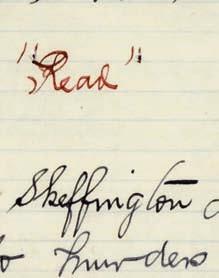 "Read"
Skeffington
to murders